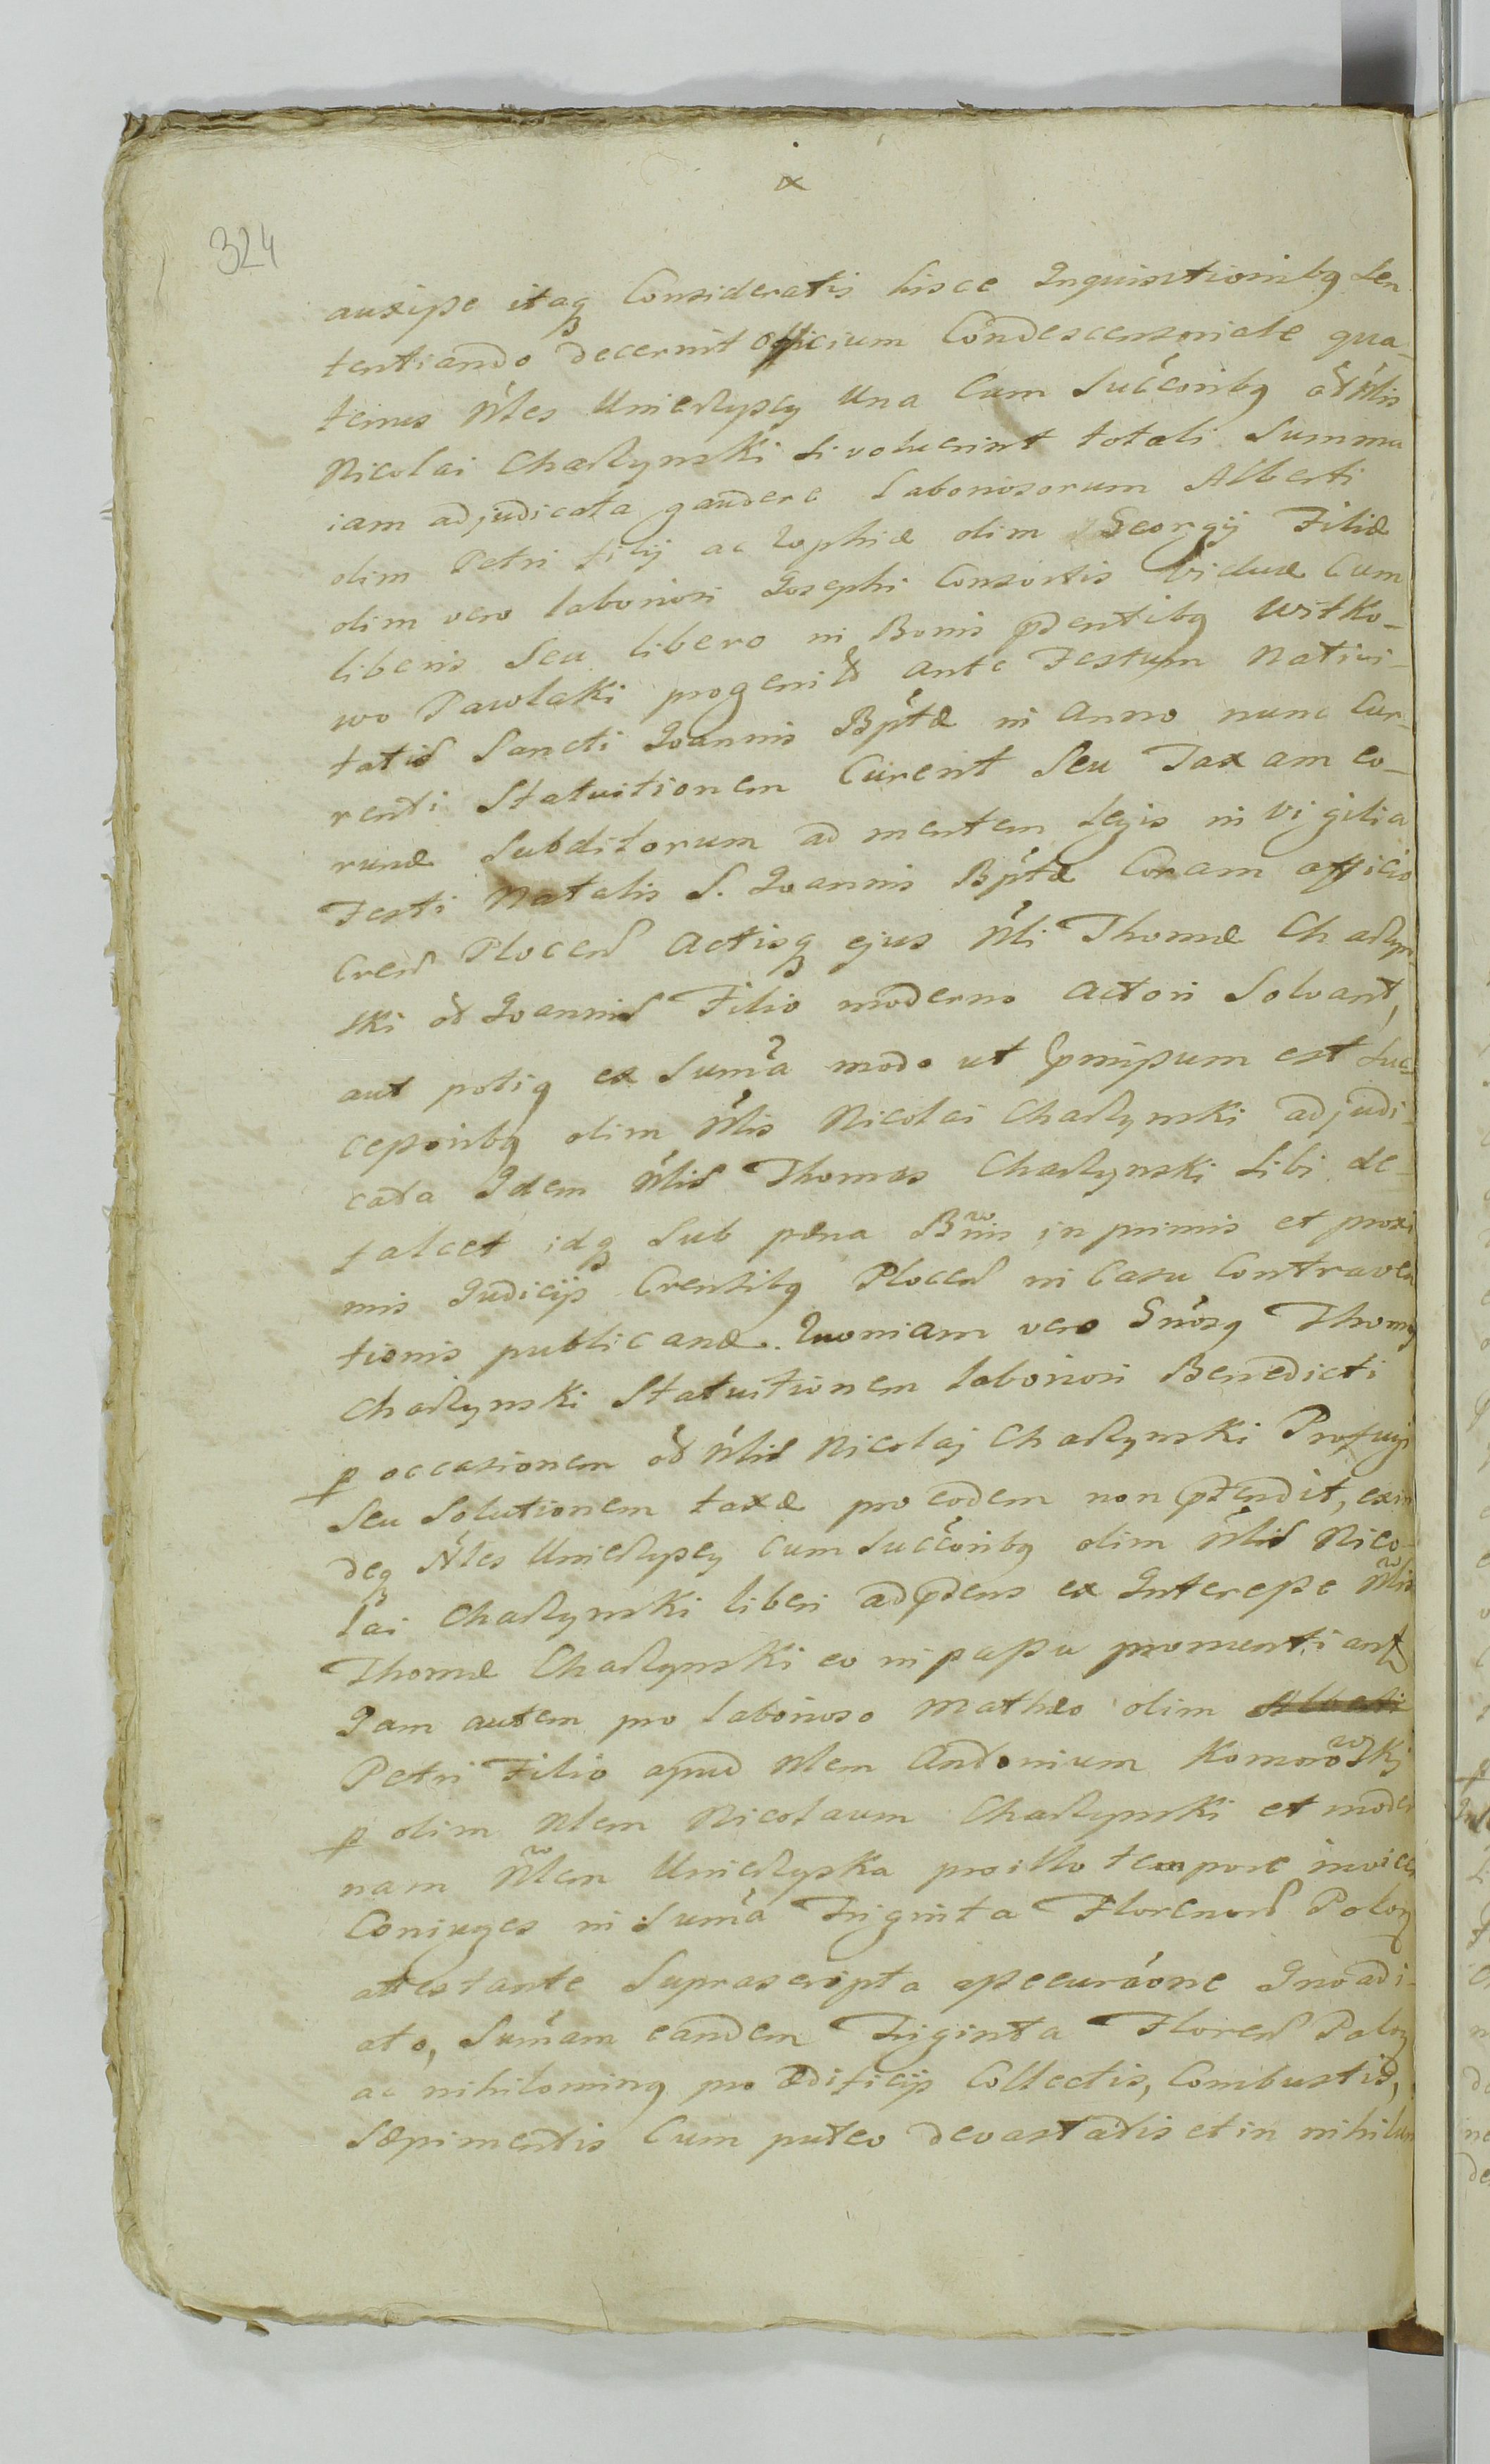 324
auxisse itaq Consideratis hisce Inquisitionibq Sen
tentiando decernit Officium Condescensoriale qua-
tenus Mles Unieszyscy Una Cum Succoribq od Mlis
Nicolai Chaszynski si voluerint totali Summa
iam adjudicata gaudere Laboriosorum Alberti
olim Petri filij ac Zophiæ olim Georgij Filiæ
olim vero laboriosi Josephi Consortis viduæ Cum
liberis Seu libero in Bonis pdentibq Witko-
wo Pawlaki progenitis ante Festum Nativi-
tatis Sancti Joannis Bptæ in Anno nunc Cur-
renti Statuitionem Curent Seu Taxam eo-
rund Subditorum ad mentem Legis in Vigilia
Festi Natalis S. Joannis Bptæ Coram officio
Cren Plocen Actisq ejus Mli Thomæ Chaszyn-
ski od Joannis Filio moderno Actori Solvant,
aut potiq ex Suma modo ut pmissum est Suc-
cessoribq olim Mlis Nicolai Chaszynski adjudi-
cata Idem Mlis Thomas Chaszynski Sibi de-
falcet idq Sub pæna Bnis in primis et proxi
mis Judicijs Crensibq Plocen in Casu Contraven
tionis publicandæ. Quoniam vero Gnosq Thomas
Chaszynski Statuitionem laboriosi Benedicti
p occasionem od Mlis Nicolaj Chaszynski Profugi
Seu Solutionem taxæ pro eodem non ptendit, exin
deq Mles Unieszyscy Cum Succoribq olim Mlis Nico-
lai Chaszynski liberi ad pdens ex Interesse Mlis
Thomæ Chaszynski eo in passu pronuntiant
Iam autem pro laborioso Matheo olim Alberti
Petri Filio apud Mlem Antonium Komorowski
p olim Mlem Nicolaum Chaszynski et moder
nam Mlem Unieszyska pro illo tempore invicem
Coniuges in Suma Triginta Florenor Polon
attestante Suprascripta assecuraone Inoadi-
ato, Sumam eandem Triginta Floren Polon
ac nihilominq pro Ædificijs Collectis, Combustis,
Sæpimentis Cum puteo devastatis et in nihilum